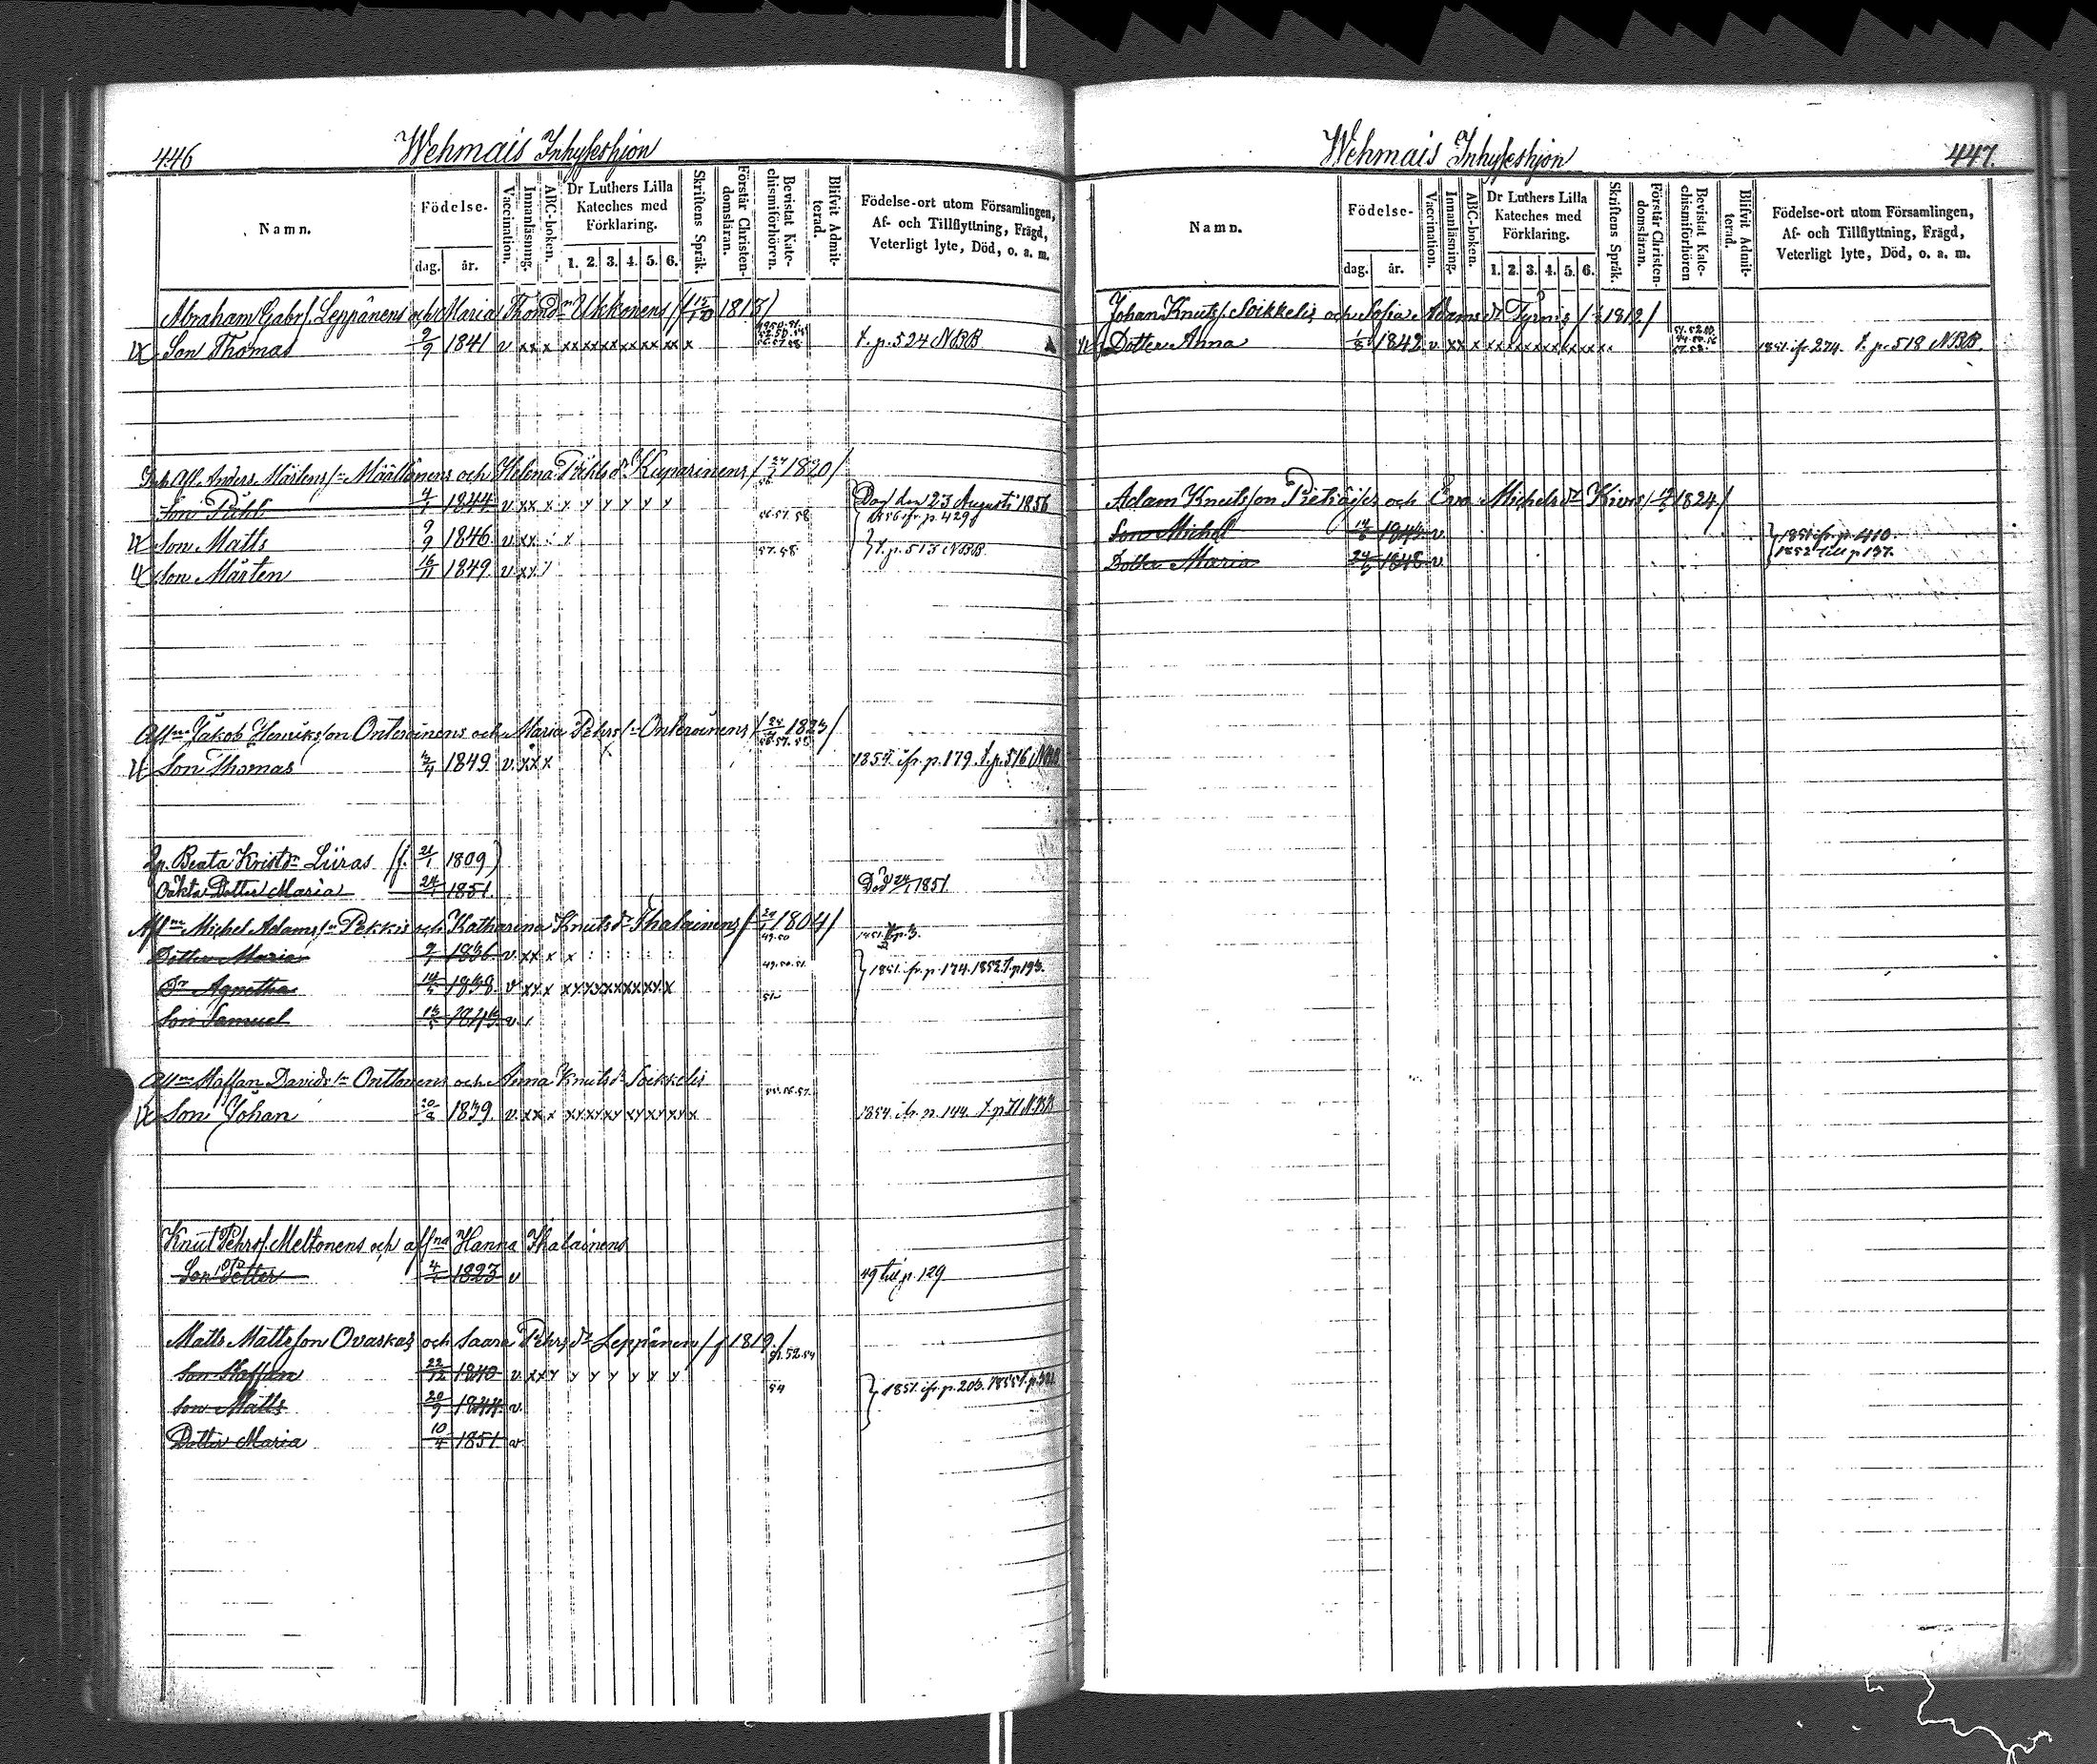 446
Wehmais Inhyseshjon
Namn.
Födelse-
dag. år.
Vaccination.
Innanläsning.
ABC-boken.
Dr Luthers Lilla Kateches med Förklaring.
1. 2. 3. 4. 5. 6.
Skriftens Språk.
Förstår Christen-domsläran.
Bevistat Kate-chismiförhören.
Blifvit Admit-terad.
Födelse-ort utom Församlingen,
Af- och Tillflyttning, Frägd,
Veterligt lyte, Död, o. a. m.
Abraham Gabr/. Leppänens och Maria Thomdr Ukkonens 1818/
Son Thomas 2/9 1841 v xx x xx xx xx xx xx xx x t. p. 524 NBB
Anders Mårtens/n Määttänens och Helena Pehlsdr Kuparinens / 1820/
Son Pehl 4/1 1844 v xx x y y y y y y Död den 23 Augusti 1856
56 ifr. p. 429
Son Matts 9/9 1846 v xx 56.57.58
Son Mårten 16/11 1849 v xx 57.58 t. p. 513 NBB
Jakob Henriksson Onteroinens och Maria Pehrs Onteroinens / 24 1823/
56.57.58
Son Thomas 1849 v. xx x 1854. ifr. p. 179. t. p. 516 NBB
Beata Kristdr Liiras (f. 21/1 1809)
Oäkta Dotter Maria 24/1 1851. Död 24/1 1851
Michel Adams/n Pekkis och Katharina Knutsdr Ihalainens / 1804/
49.50
Dotter Maria 9/7 1836 v xx x x
49.50.51.
Dr Agnetha 14/5 1838 v xx x xx xx xx xx xx x } 1851. ifr. p. 174. 1852. t. p. 193.
Son Samuel 1843 v
Staffan Davids/n Onttonens och Anna Knutsdr Soikkelis
55.56.57.
Son Johan 20/2 1839. v xx x xx xx xx xx xx xx x 1854. ifr. p. 144. t. p. 71 NBB
Knut Pehrs/. Meltonens och aflna Hanna Ihalainens
Son Petter 4/1 1823 v 49 till p. 129
Matts Mattsson Ovaskas och Saara Pehrsdr Leppänen / f 1819./
51.52.54
Son Staffan 22/12 1840 v xx y y y y y y y
54
Son Matts 20/9 1844. v. } 1851. ifr. p. 203. 1855 t. p.
Dotter Maria 10/4 1851. v.
Wehmais Inhyseshjon
447.
Namn.
Födelse-
dag. år.
Vaccination.
Innanläsning.
ABC-boken.
Dr Luthers Lilla Kateches med Förklaring.
1. 2. 3. 4. 5. 6.
Skriftens Språk.
Förstår Christen-domsläran.
Bevistat Kate-chismiförhören
Blifvit Admit-terad.
Födelse-ort utom Församlingen,
Af- och Tillflyttning, Frägd,
Veterligt lyte, Död, o. a. m.
Johan Knuts/. Soikkelis och Sofia Adamsdr Tyrnis / 1812/
Dotter Anna 1/8 1842 v xx x xx xx xx xx xx xx 1851. ifr. 274. t. p. 518 NBB.
Adam Knutsson Pietiäises och Eva Michelsdr Kives / 1824/
Son Michel 1844 v. } 1851 ifr. p. 410.
Dotter Maria 1848 v. 1852 till p 137.